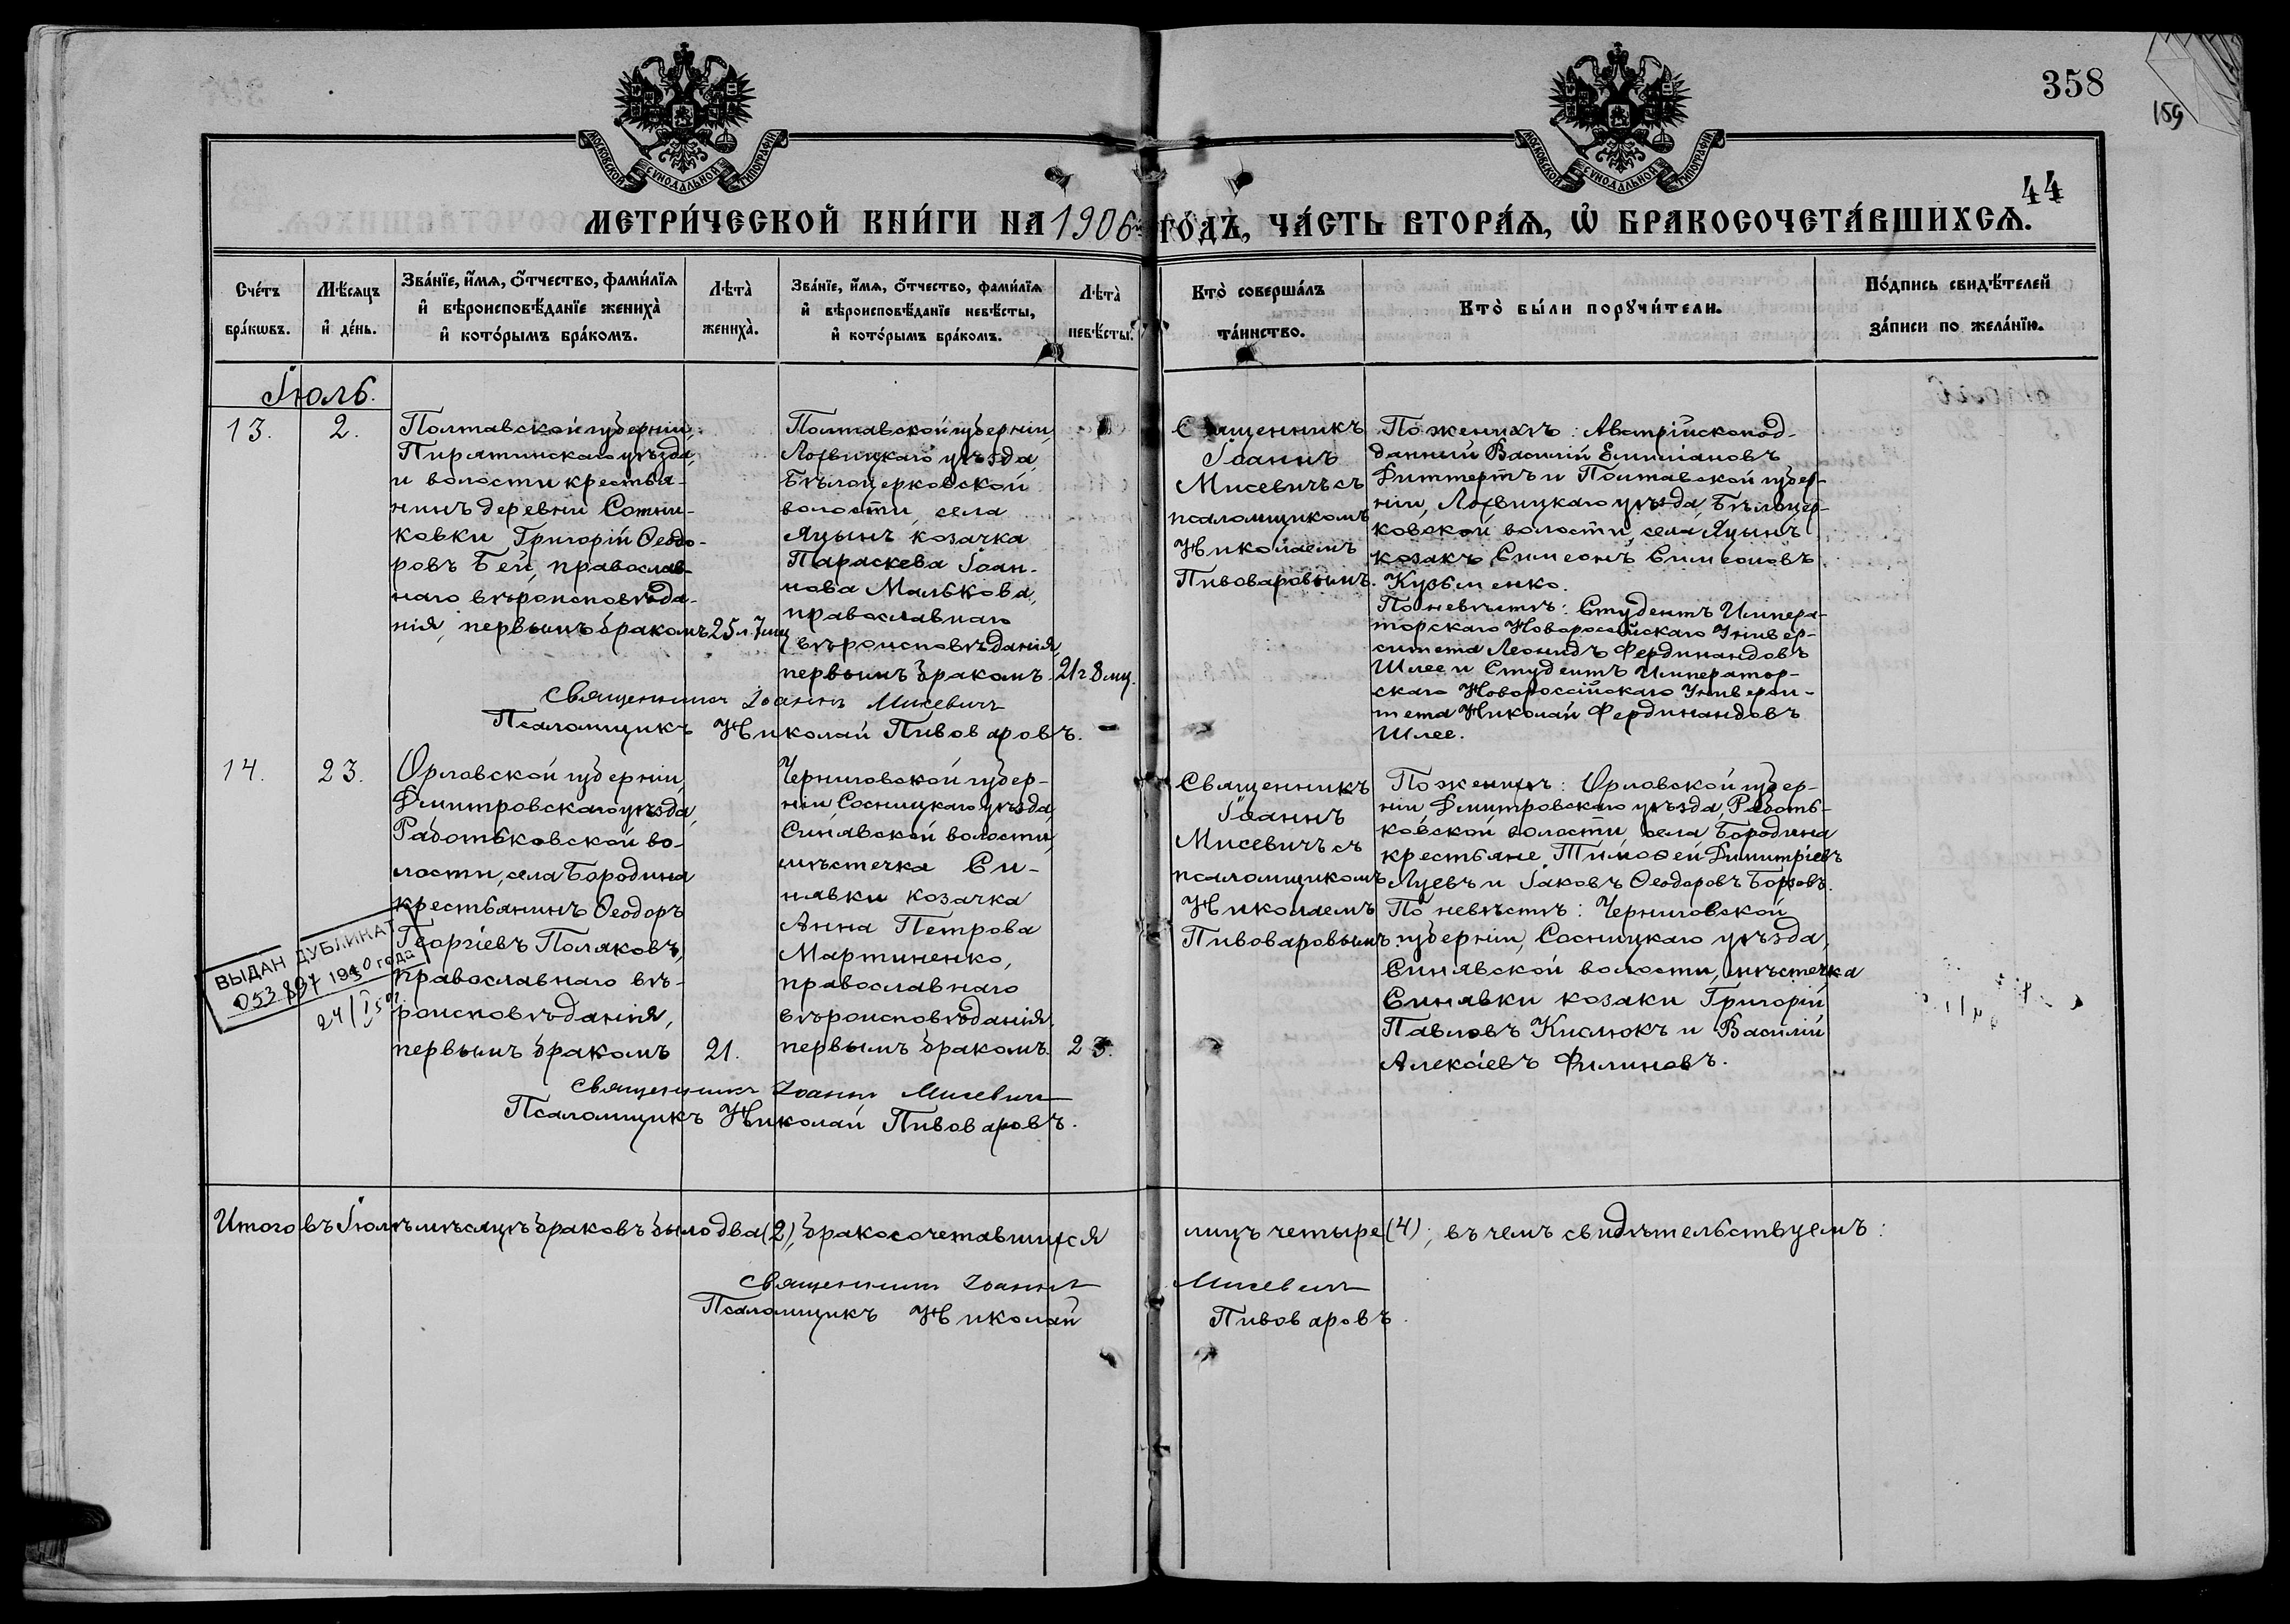 358
159
44
МОСКОВСКОЙ СѴНОДАЛЬНОЙ ТИПОГРАФІИ
МОСКОВСКОЙ СѴНОДАЛЬНОЙ ТИПОГРАФІИ
МЕТРИ́ЧЕСКОЙ КНИ́ГИ НА 1906й ГО́ДЪ, ЧА́СТЬ ВТОРА́Я, Ѡ БРАКОСОЧЕТА́ВШИХСЯ.
Сче́тъ
бра́кѡвъ.
Мѣ́сяцъ
и де́нь.
Зва́нїе, и́мя, ѻ́тчество, фами́лїя
и вѣроисповѣ́данїе жениха̀
и кото́рымъ бра́комъ.
Лѣта̀
жениха̀.
Зва́нїе, и́мя, ѻ́тчество, фами́лїя
и вѣроисповѣ́данїе невѣ́сты,
и кото́рымъ бра́комъ.
Лѣта̀
невѣ́сты.
Кто̀ соверша́лъ
та́инство.
Кто̀ бы́ли порꙋчи́тели.
По́дпись свидѣ́телей
за́писи по жела́нїю.
Іюль.
13.
2.
Полтавской губерніи,
Пирятинскаго уѣзда,
и волости крестья-
нинъ деревни Сотни-
ковки Григорій Ѳеодо-
ровъ Бей, православ-
наго вѣроисповѣда-
нія, первымъ бракомъ
25 л. 7 мц
Полтавской губерніи,
Лохвицкаго уѣзда,
Бѣлоцерковской
волости, села
Яцынъ козачка
Параскева Іоан-
нова Малькова,
православнаго
вѣроисповѣданія,
первымъ бракомъ.
21 г 8 мц.
Священникъ
Іоаннъ
Мисевичъ съ
псаломщикомъ
Николаемъ
Пивоваровымъ.
По женихѣ: Австрійскопод-
данный Василій Емиліановъ
Диттертъ и Полтавской губер-
ніи, Лохвицкаго уѣзда, Бѣлоцер-
ковской волости, села Яцынъ
козакъ Симеонъ Симеоновъ
Кузьменко.
По невѣстѣ: Студентъ Импера-
торскаго Новороссійскаго Универ-
ситета Леонидъ Фердинандовъ
Шлее и Студентъ Император-
скаго Новороссійскаго Универси-
тета Николай Фердинандовъ
Шлее.
Священникъ Іоаннъ Мисевичъ
Псаломщикъ Николай Пивоваровъ.
14.
23.
Орловской губерніи,
Дмитровскаго уѣзда,
Работьковской во-
лости, села Бородина
крестьянинъ Ѳеодоръ
Георгіевъ Поляковъ,
православнаго вѣ-
роисповѣданія,
первымъ бракомъ
21.
Черниговской губер-
ніи Сосницкаго уѣзда,
Синявской волости,
мѣстечка Си-
нявки козачка
Анна Петрова
Мартиненко,
православнаго
вѣроисповѣданія,
первымъ бракомъ.
23.
Священникъ
Іоаннъ
Мисевичъ съ
псаломщикомъ
Николаемъ
Пивоваровымъ.
По женихѣ: Орловской губер-
ніи, Дмитровскаго уѣзда, Работь-
ковской волости, села Бородина
крестьяне Тимоѳей Димитріевъ
Луевъ и Іаковъ Ѳеодоровъ Борзовъ.
По невѣстѣ: Черниговской
губерніи, Сосницкаго уѣзда,
Синявской волости, мѣстечка
Синявки козаки Григорій
Павловъ Кислюкъ и Василій
Алексіевъ Филиновъ.
ВЫДАН ДУБЛИКАТ
053897 1950 года
24/I 50г.
Священникъ Іоаннъ Мисевичъ
Псаломщикъ Николай Пивоваровъ.
Итого въ Іюлѣ мѣсяцѣ браковъ было два (2), бракосочетавшихся лицъ четыре (4); въ чемъ свидѣтельствуемъ:
Священникъ Іоаннъ Мисевичъ
Псаломщикъ Николай Пивоваровъ.